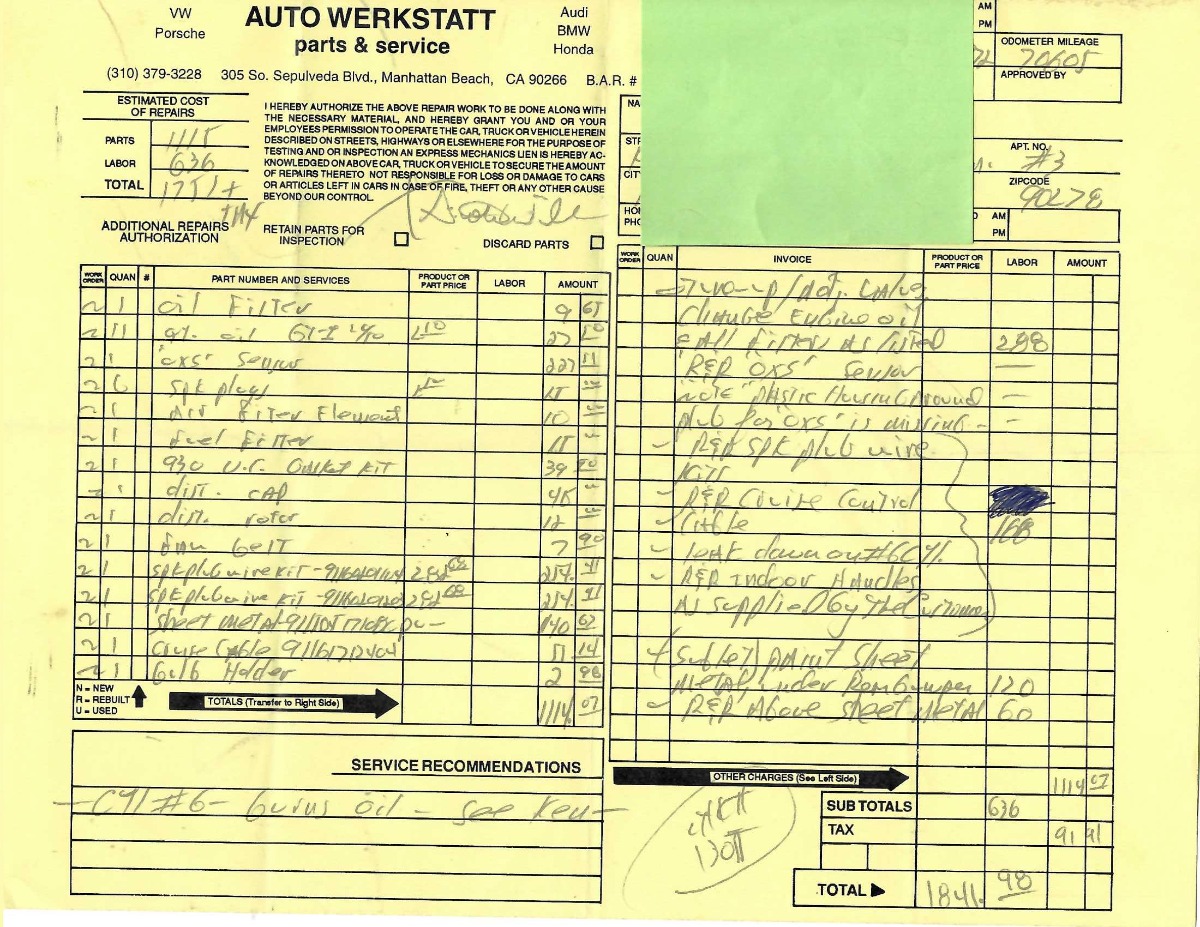 VW
Porsche
AUTO WERKSTATT
parts & service
Audi
BMW
Honda
(310) 379-3228 305 So. Sepulveda Blvd., Manhattan Beach, CA 90266 B.A.R. #
AM
PM
ODOMETER MILEAGE
70605
APPROVED BY
ESTIMATED COST
OF REPAIRS
PARTS 1115
LABOR 636
TOTAL 1751+
I HEREBY AUTHORIZE THE ABOVE REPAIR WORK TO BE DONE ALONG WITH
THE NECESSARY MATERIAL, AND HEREBY GRANT YOU AND OR YOUR
EMPLOYEES PERMISSION TO OPERATE THE CAR, TRUCK OR VEHICLE HEREIN
DESCRIBED ON STREETS, HIGHWAYS OR ELSEWHERE FOR THE PURPOSE OF
TESTING AND OR INSPECTION AN EXPRESS MECHANICS LIEN IS HEREBY AC-
KNOWLEDGED ON ABOVE CAR, TRUCK OR VEHICLE TO SECURE THE AMOUNT
OF REPAIRS THERETO NOT RESPONSIBLE FOR LOSS OR DAMAGE TO CARS
OR ARTICLES LEFT IN CARS IN CASE OF FIRE, THEFT OR ANY OTHER CAUSE
BEYOND OUR CONTROL.
ADDITIONAL REPAIRS
AUTHORIZATION
RETAIN PARTS FOR
INSPECTION
DISCARD PARTS
NA
STR
CITY
APT. NO.
#3
ZIPCODE
90278
HO
PHO
D
AM
PM
WORK ORDER QUAN # PART NUMBER AND SERVICES PRODUCT OR PART PRICE LABOR AMOUNT
1 oil Filter 9 65
11 qt. oil
1 "OXS" Sensor 227 11
6 spk plugs
1 Air Filter Element 10
1 fuel Filter
1 930 V.C. Gasket KIT 39 90
1 dist. cap
1 dist. rotor 12
1 Fan belt 7 90
1 spk plub wire kit
1 spk plub wire kit
1 sheet metal 140 67
1 Cruise Cable
1 bulb Holder 2 98
N = NEW
R = REBUILT
U = USED
TOTALS (Transfer to Right Side) 1114 07
SERVICE RECOMMENDATIONS
- CYl #6 - burns oil - see Ken -
WORK ORDER QUAN INVOICE PRODUCT OR PART PRICE LABOR AMOUNT
Tune-up/Adj. Valves
Change Engine oil
& All Filters As listed 288
R&R "OXS" Sensor —
Note plastic Housing Around —
plub for "OXS" is missing -
- R&R spk plub wire
Kits
- R&R Cruise Control
- Cable 168
- leak down on #6 Cyl.
- R&R Indoor Handles
As supplied by the Customer
(sublet) paint Sheet
Metal under Rear bumper 120
- R&R Above sheet Metal 60
OTHER CHARGES (See Left Side) 1114 07
SUB TOTALS 636
TAX 91 91
TOTAL 1841. 98